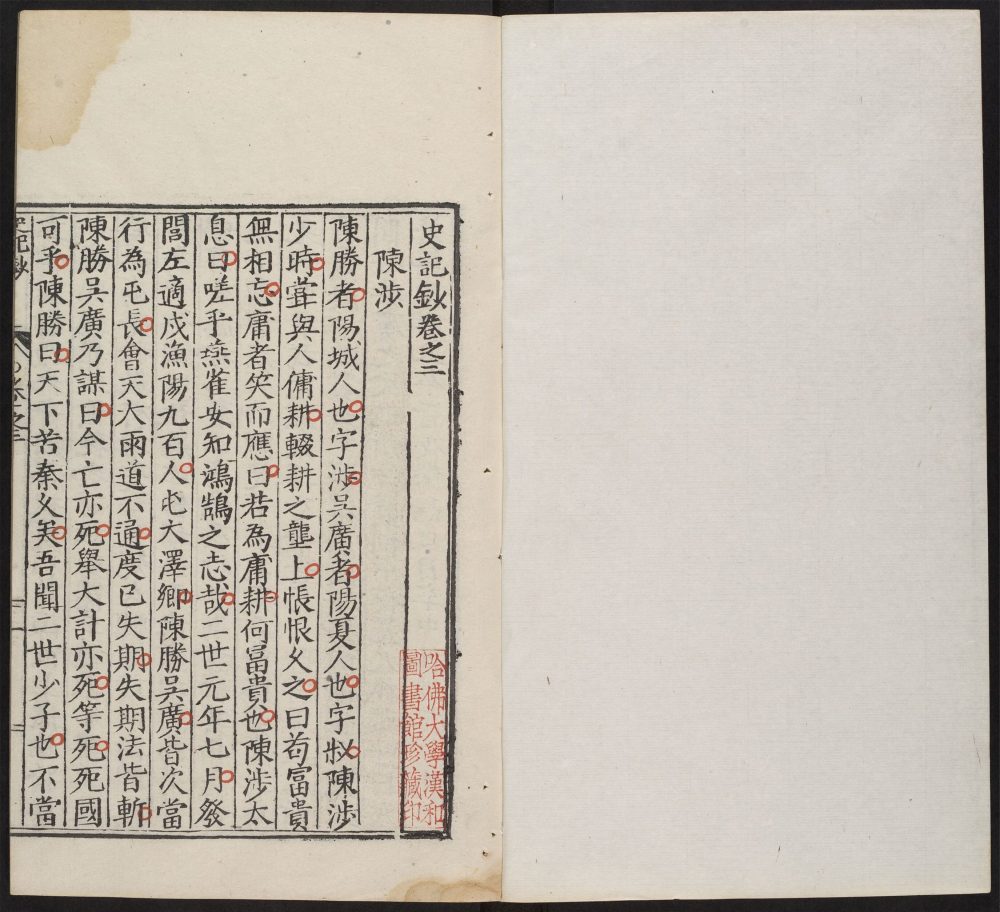 史記鈔卷之三
陳涉
陳勝者陽城人也字涉吳廣者陽夏人也字叔陳涉
少時甞與人傭耕輟耕之壟上悵恨乆之曰苟冨貴
無相忘庸者笑而應曰若為庸耕何冨貴也陳涉太
息曰嗟乎燕雀安知鴻鵠之志哉二世元年七月發
閭左適戍漁陽九百人屯大澤鄉陳勝吳廣皆次當
行為屯長會天大雨道不通度已失期失期法皆斬
陳勝吳廣乃謀曰今亡亦死舉大計亦死等死死國
可乎陳勝曰天下苦秦乆矣吾聞二世少子也不當
史記鈔
哈佛大學漢和
圖書館珍藏印